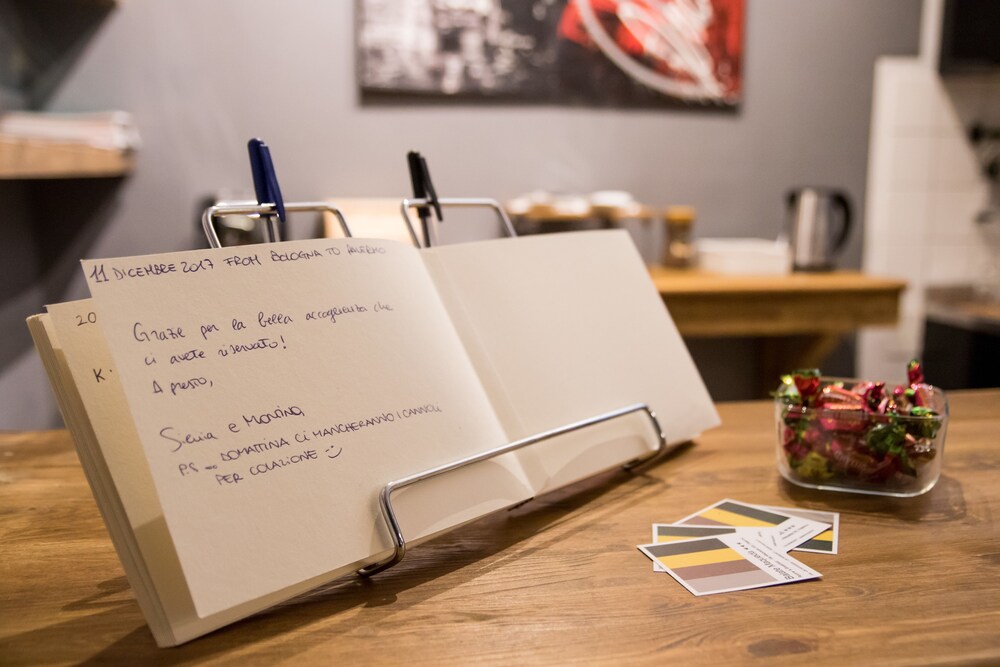 11 DICEMBRE 2017 FROM BOLOGNA TO PALERMO
Grazie per la bella accoglienza che
ci avete riservato!
A presto,
Silvia e Martina
PS → DOMATTINA CI MANCHERANNO I CANNOLI
PER COLAZIONE :-)
20
K.